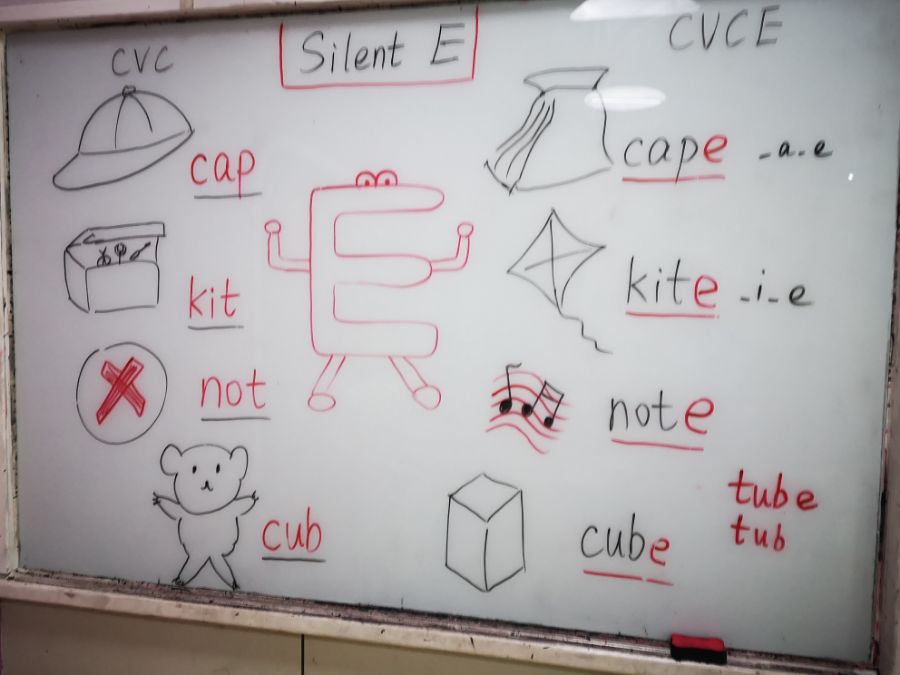 CVC
Silent E
CVCE
cap
cape -a-e
kit
kite -i-e
not
note
cub
cube
tube
tub